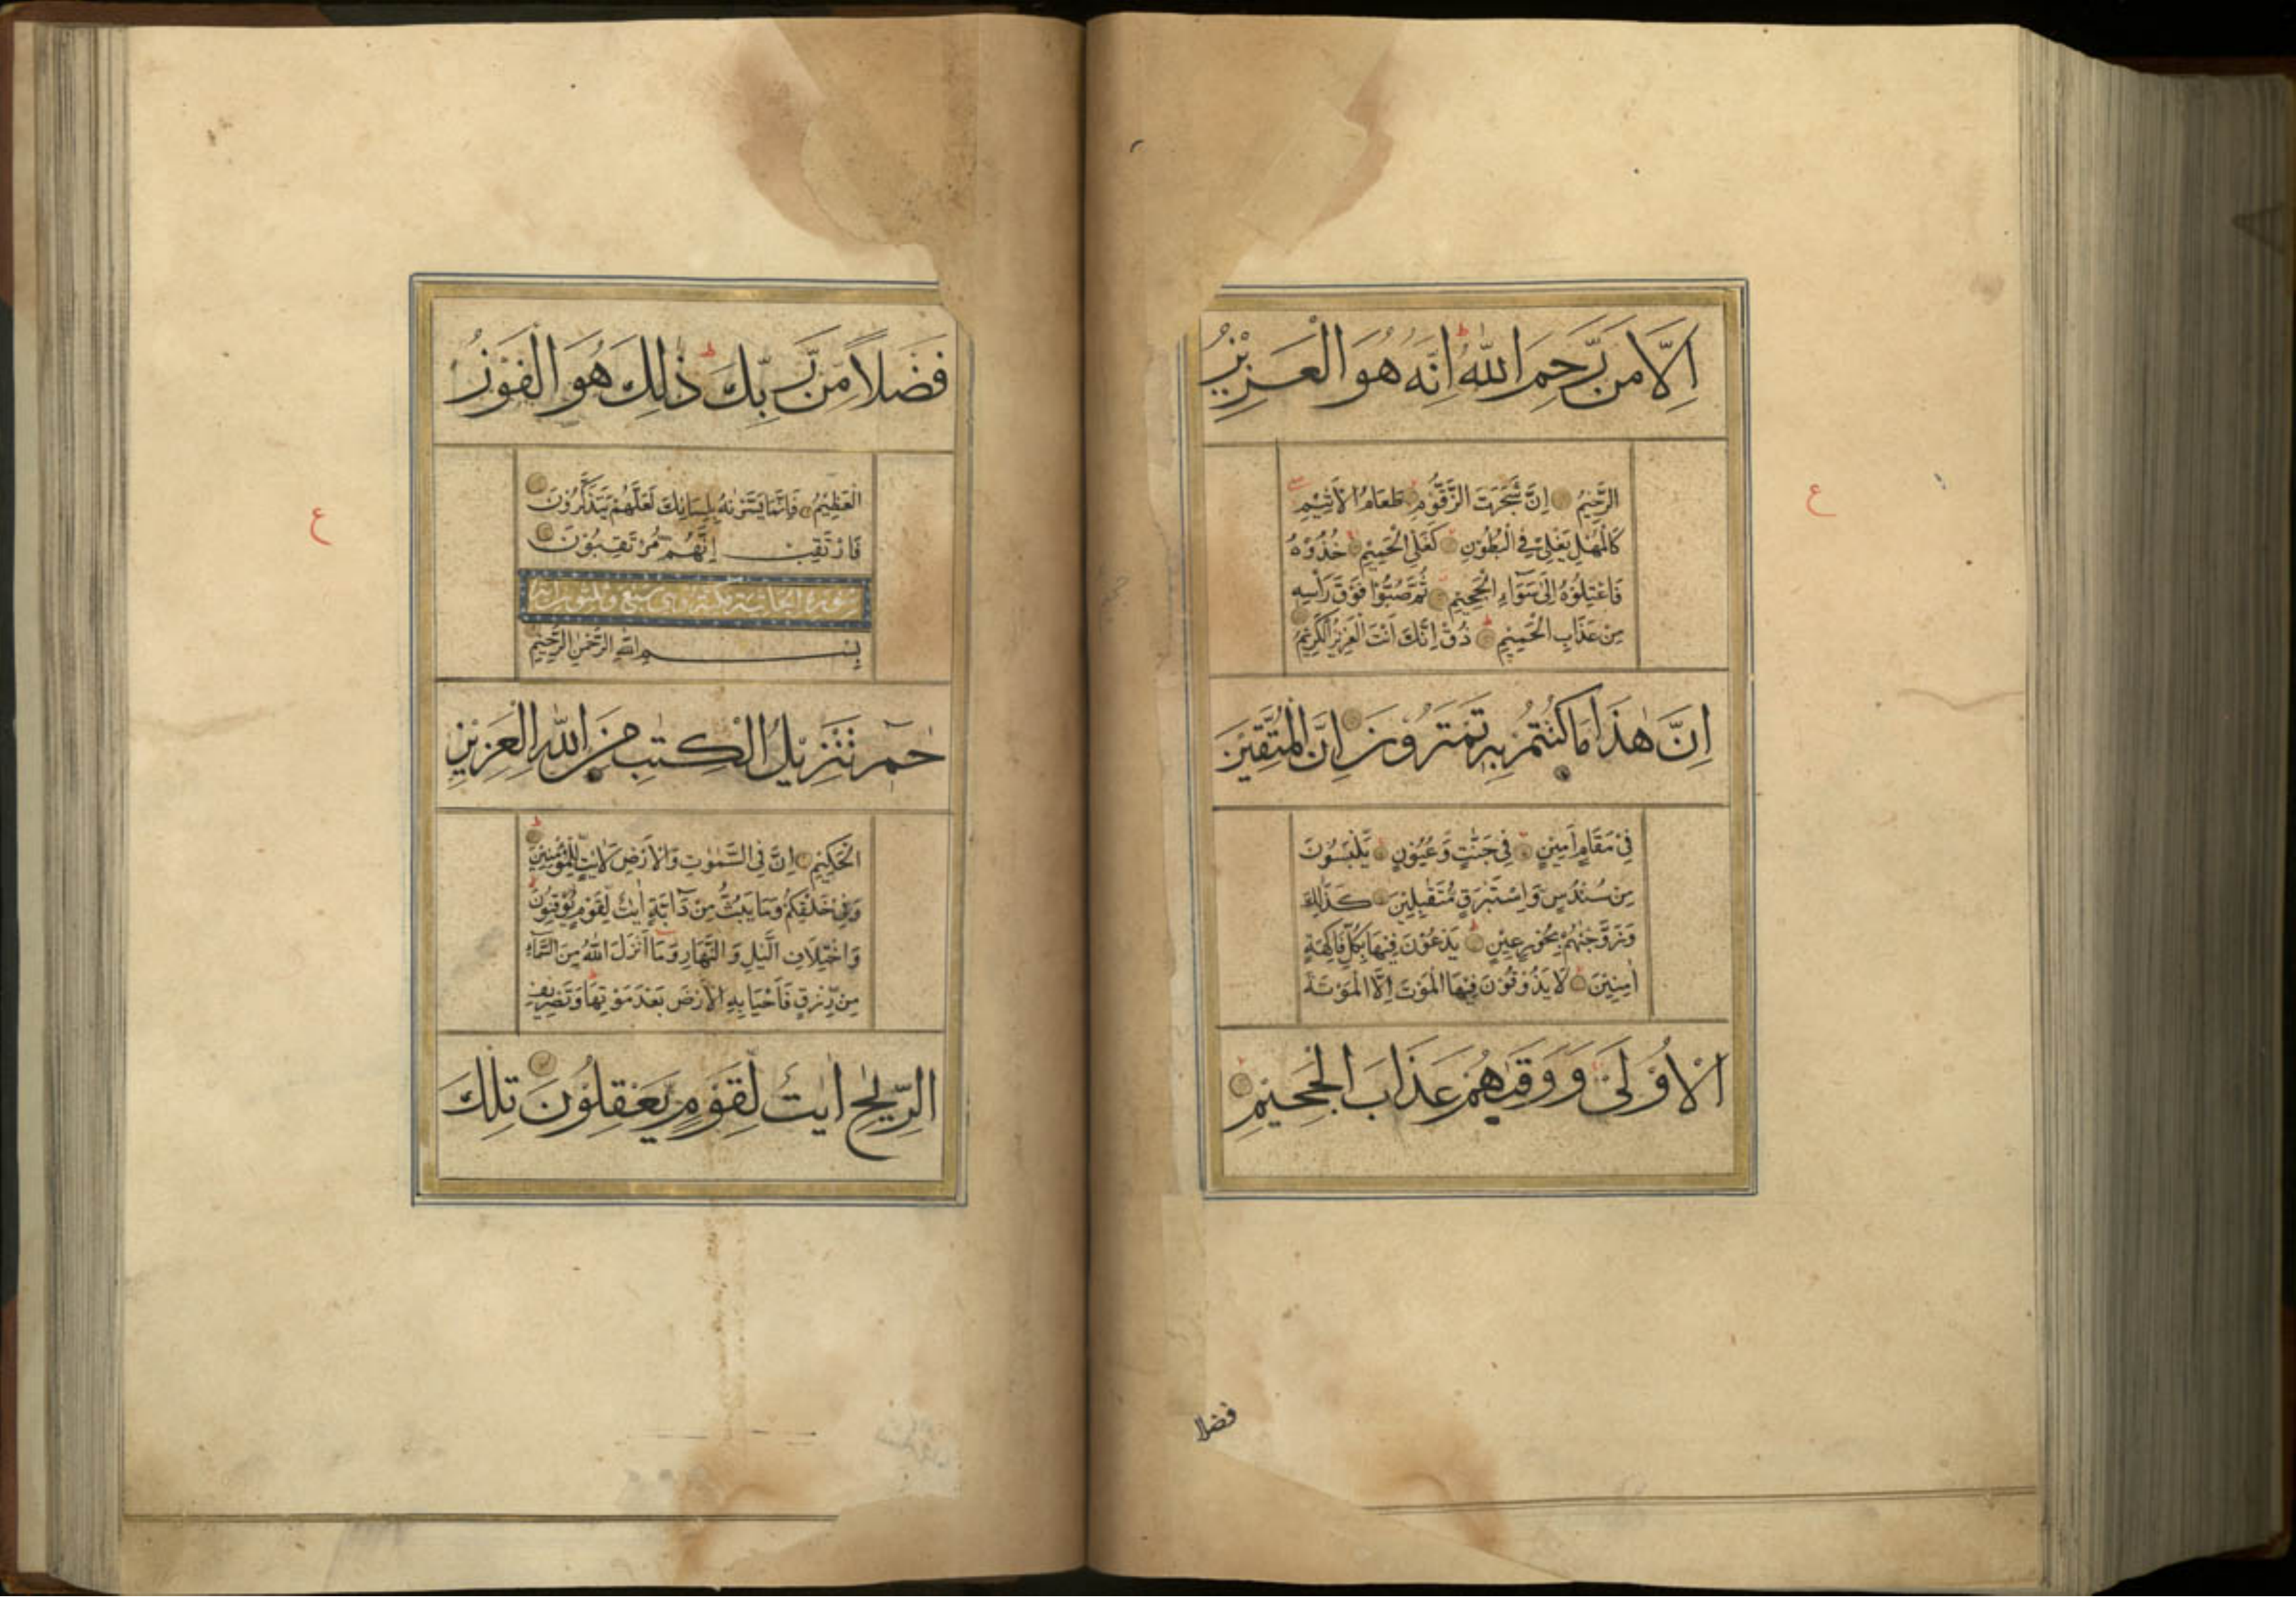 اِلَّا مَن رَّحِمَ اللّٰهُ اِنَّهُ هُوَ الْعَزِيْزُ
الرَّحِيْمُ اِنَّ شَجَرَتَ الزَّقُّوْمِ طَعَامُ الْاَثِيْمِ
كَالْمُهْلِ يَغْلِيْ فِي الْبُطُوْنِ كَغَلْيِ الْحَمِيْمِ خُذُوْهُ
فَاعْتِلُوْهُ اِلٰى سَوَآءِ الْجَحِيْمِ ثُمَّ صُبُّوْا فَوْقَ رَاْسِهٖ
مِنْ عَذَابِ الْحَمِيْمِ ذُقْ اِنَّكَ اَنْتَ الْعَزِيْزُ الْكَرِيْمُ
اِنَّ هٰذَا مَا كُنْتُمْ بِهٖ تَمْتَرُوْنَ اِنَّ الْمُتَّقِيْنَ
فِيْ مَقَامٍ اَمِيْنٍ فِيْ جَنّٰتٍ وَّعُيُوْنٍ يَّلْبَسُوْنَ
مِنْ سُنْدُسٍ وَّاِسْتَبْرَقٍ مُّتَقٰبِلِيْنَ كَذٰلِكَ
وَزَوَّجْنٰهُمْ بِحُوْرٍ عِيْنٍ يَدْعُوْنَ فِيْهَا بِكُلِّ فَاكِهَةٍ
اٰمِنِيْنَ لَا يَذُوْقُوْنَ فِيْهَا الْمَوْتَ اِلَّا الْمَوْتَةَ
الْاُوْلٰى وَوَقٰىهُمْ عَذَابَ الْجَحِيْمِ
فضلا
ع
فَضْلًا مِّنْ رَّبِّكَ ذٰلِكَ هُوَ الْفَوْزُ
الْعَظِيْمُ فَاِنَّمَا يَسَّرْنٰهُ بِلِسَانِكَ لَعَلَّهُمْ يَتَذَكَّرُوْنَ
فَارْتَقِبْ اِنَّهُمْ مُّرْتَقِبُوْنَ
سورة الجاثية مكية وهى سبع وثلثون اية
بِسْمِ اللّٰهِ الرَّحْمٰنِ الرَّحِيْمِ
حٰمٓ تَنْزِيْلُ الْكِتٰبِ مِنَ اللّٰهِ الْعَزِيْزِ
الْحَكِيْمِ اِنَّ فِي السَّمٰوٰتِ وَالْاَرْضِ لَاٰيٰتٍ لِّلْمُؤْمِنِيْنَ
وَفِيْ خَلْقِكُمْ وَمَا يَبُثُّ مِنْ دَآبَّةٍ اٰيٰتٌ لِّقَوْمٍ يُّوْقِنُوْنَ
وَاخْتِلَافِ الَّيْلِ وَالنَّهَارِ وَمَا اَنْزَلَ اللّٰهُ مِنَ السَّمَآءِ
مِنْ رِّزْقٍ فَاَحْيَا بِهِ الْاَرْضَ بَعْدَ مَوْتِهَا وَتَصْرِيْفِ
الرِّيٰحِ اٰيٰتٌ لِّقَوْمٍ يَّعْقِلُوْنَ تِلْكَ
ع